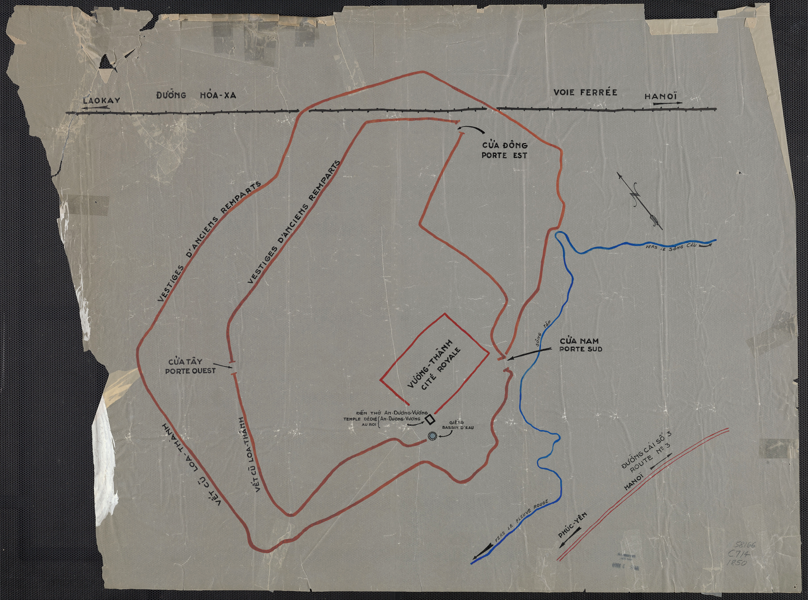 LAOKAY
ĐƯỜNG HỎA-XA
VOIE FERRÉE
HANOÏ
CỬA ĐÔNG
PORTE EST
VESTIGES D'ANCIENS REMPARTS
VESTIGES D'ANCIENS REMPARTS
VERS LE SONG CAU
CỬA NAM
PORTE SUD
VƯƠNG-THÀNH
CITÉ ROYALE
CỬA TÂY
PORTE OUEST
ĐỀN THỜ AN-DƯƠNG-VƯƠNG
TEMPLE DÉDIÉ AN-DƯƠNG-VƯƠNG
AU ROI
GIẾNG
BASSIN D'EAU
VẾT CŨ LOA-THÀNH
VẾT CŨ LOA-THÀNH
ĐƯỜNG CÁI SỐ 3
ROUTE Nº 3
HANOÏ
PHÚC-YÊN
VERS LE FLEUVE ROUGE
1950